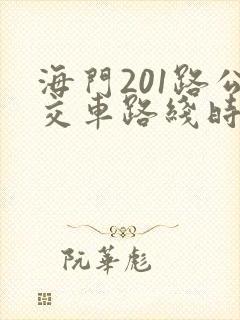 海門201路公
交車路綫時
阮華彪